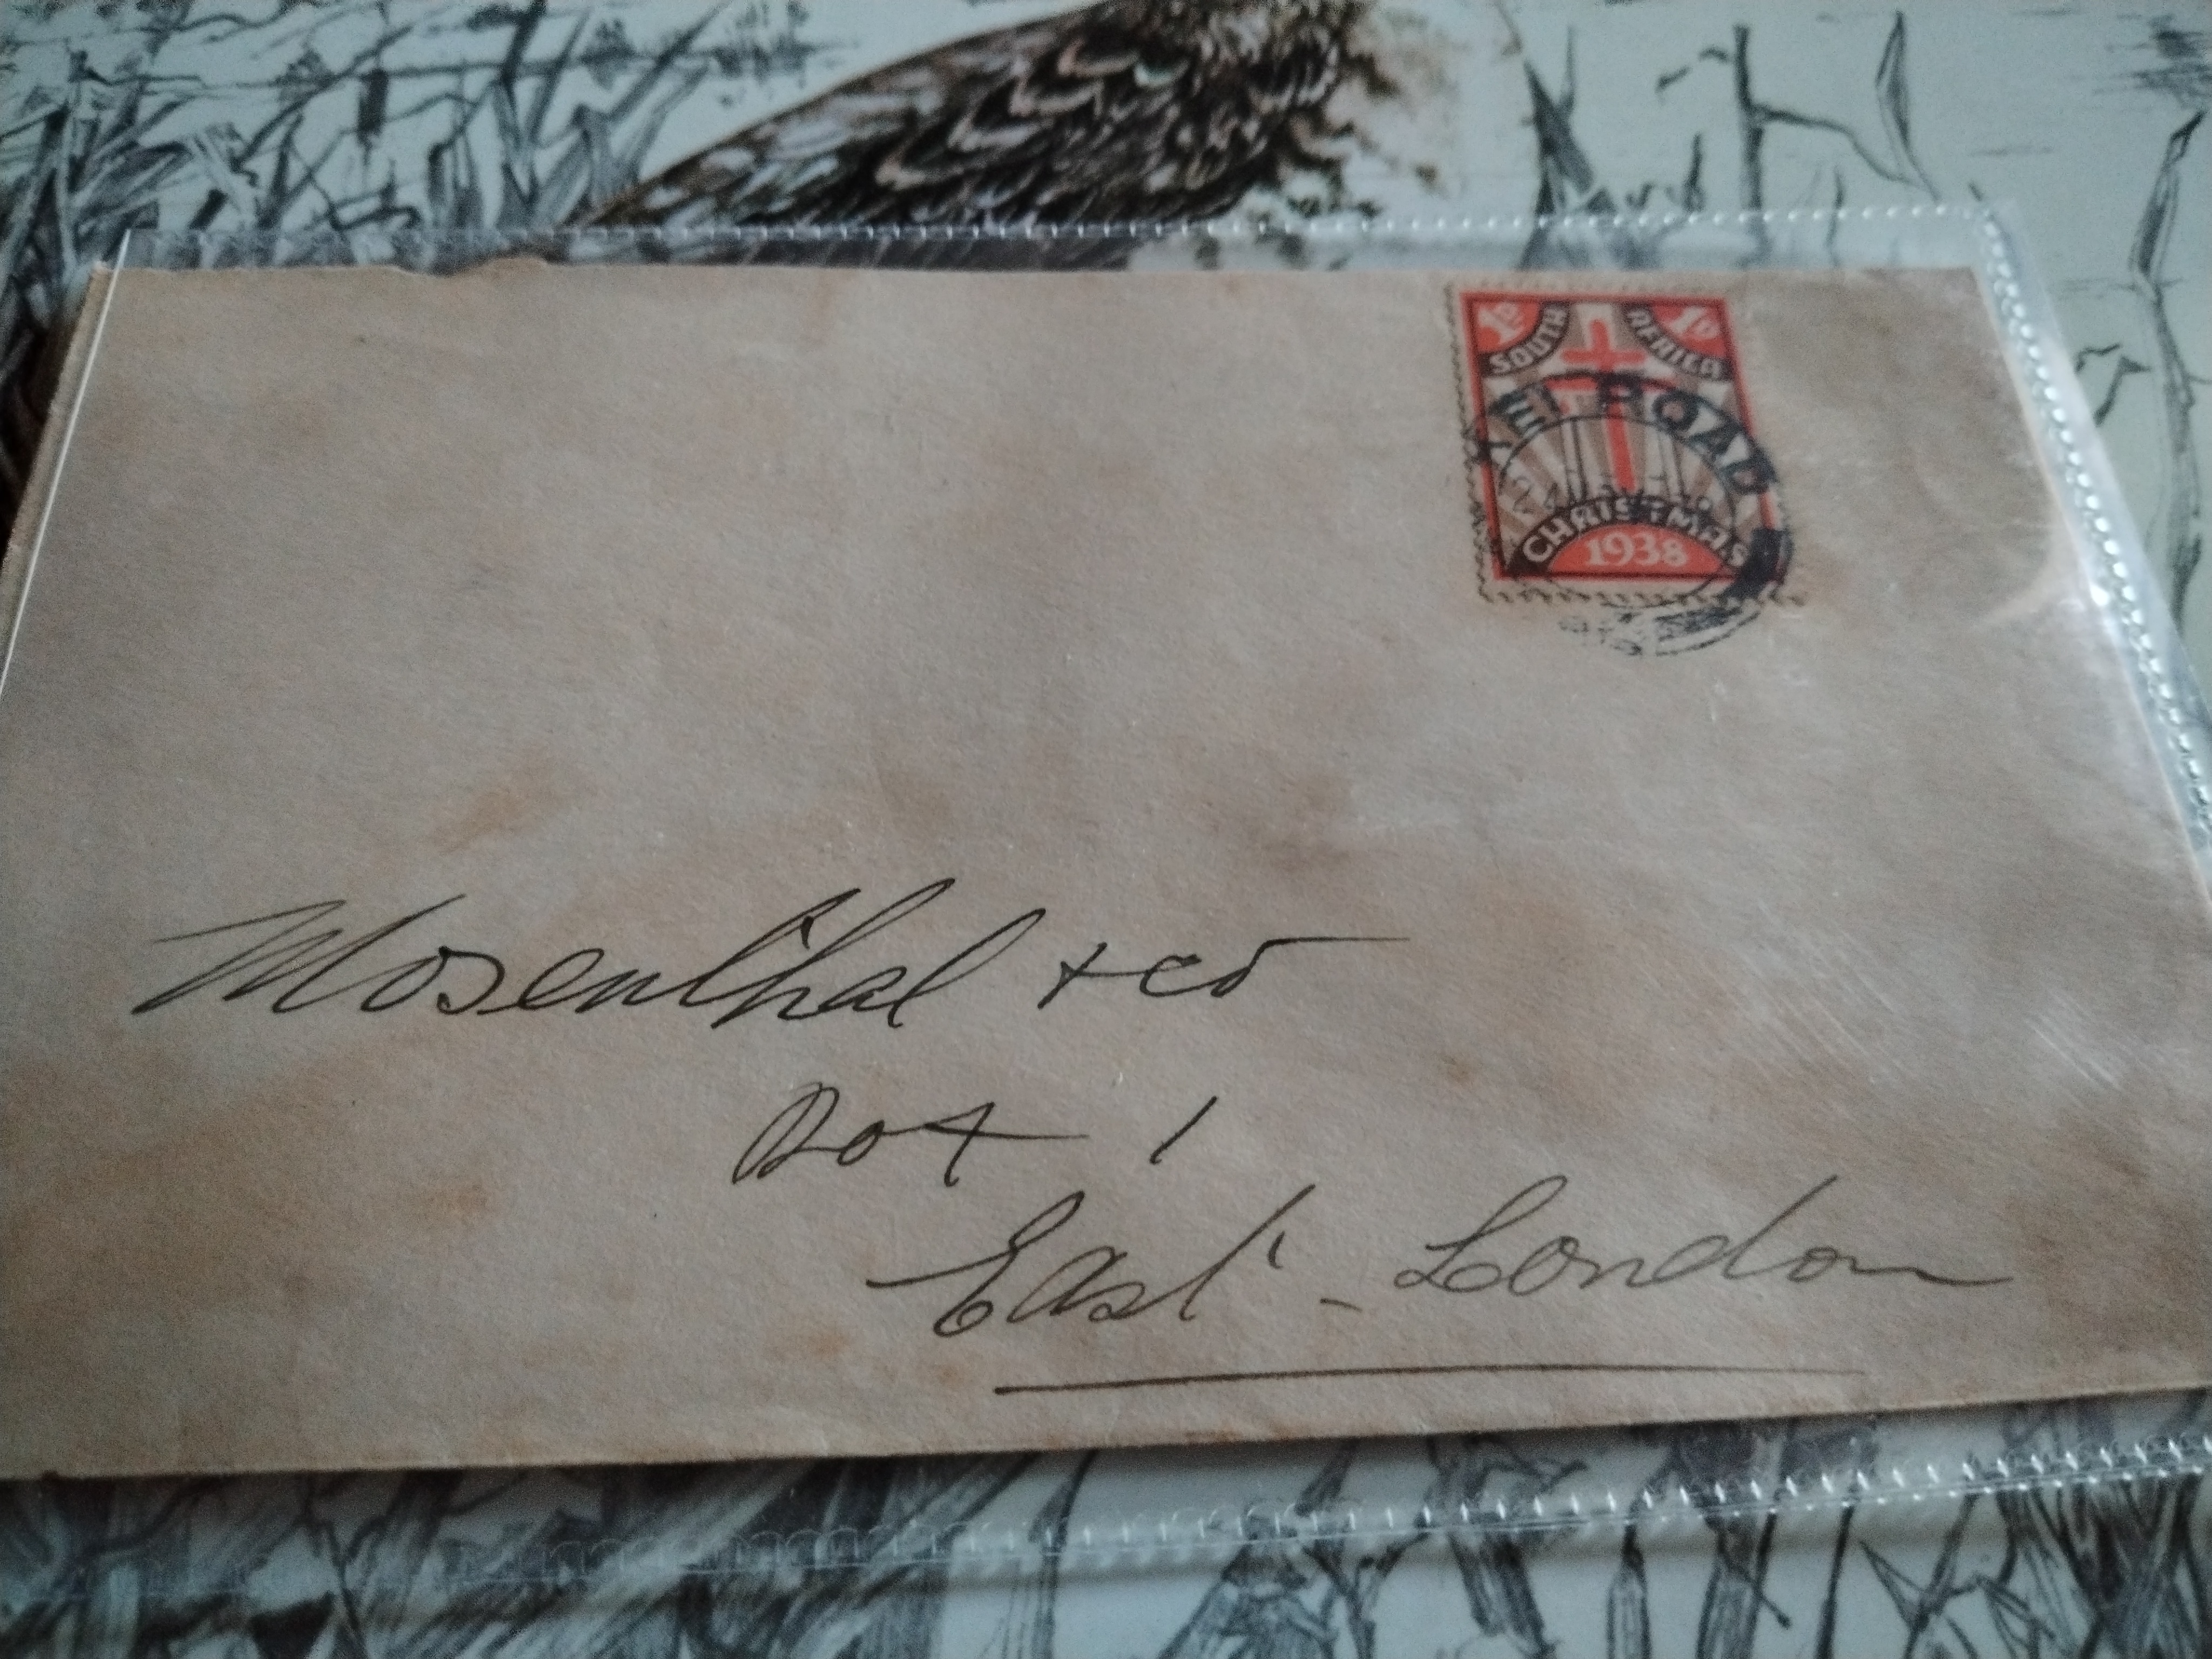 1D 1D
SOUTH AFRICA
KEI ROAD
CHRISTMAS
1938
Mosenthal + co
Box 1
East - London